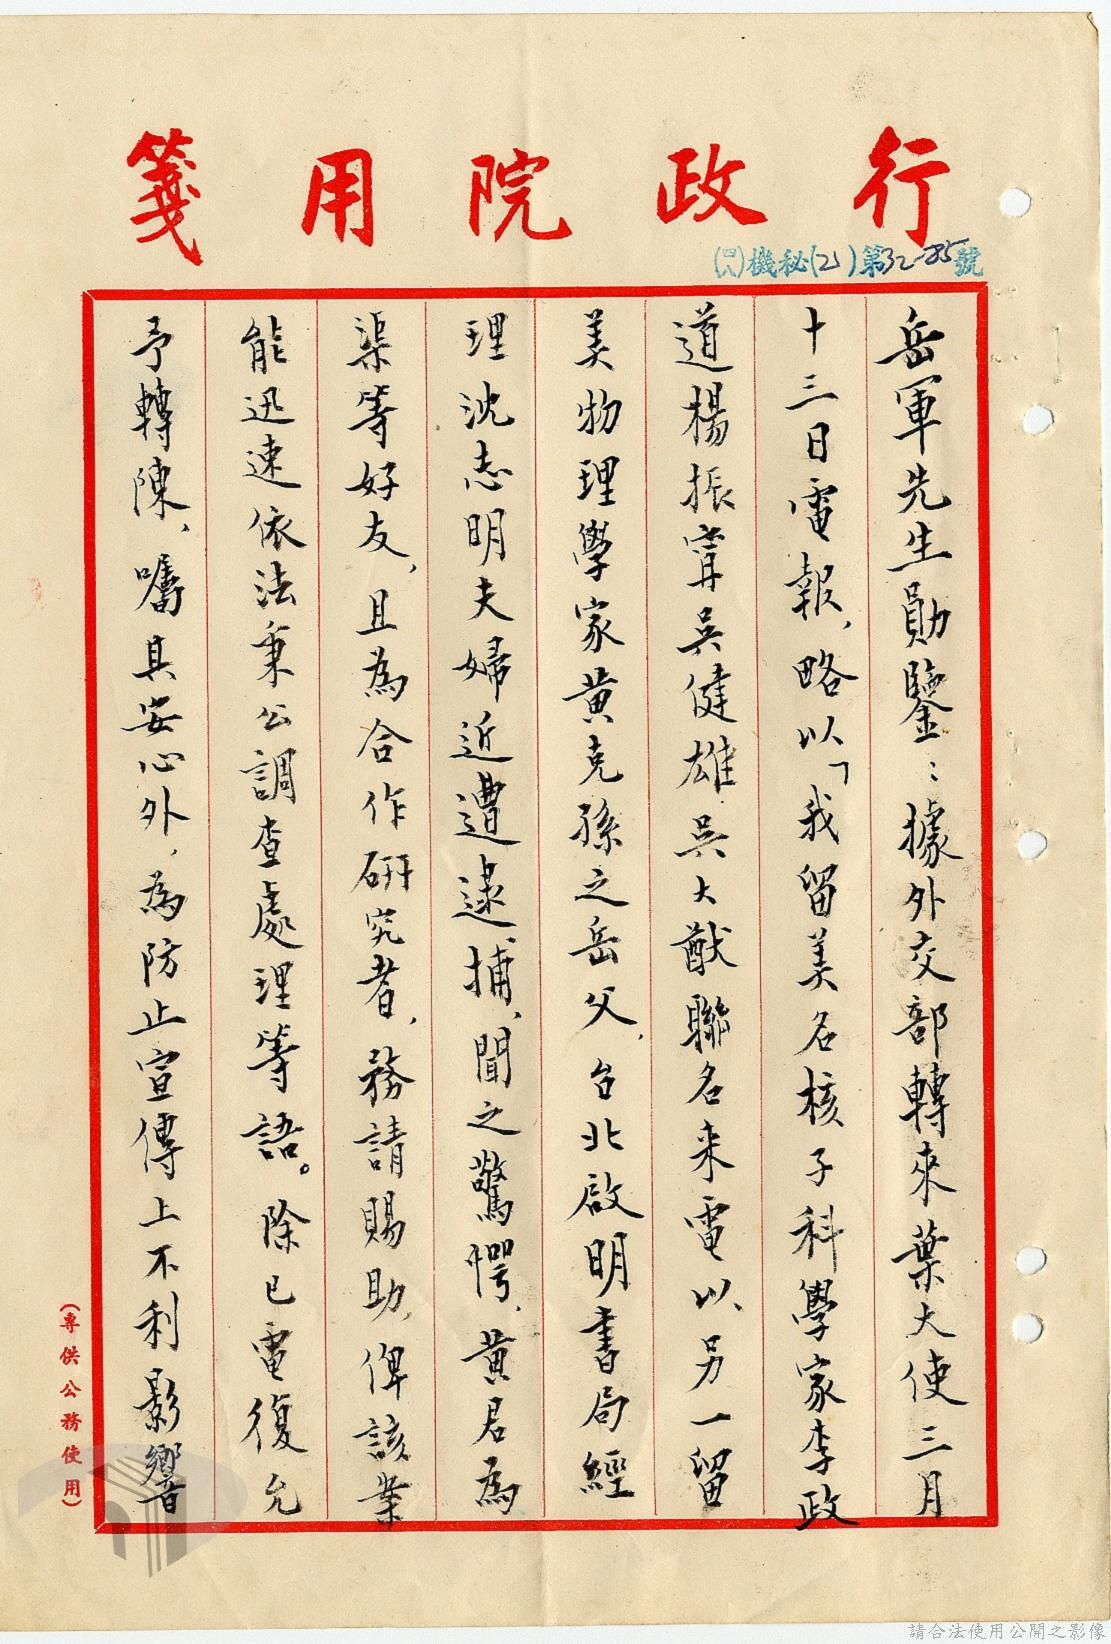 行政院用箋
(四八)機秘(2)第32-85號
岳軍先生勛鑒：據外交部轉來葉大使三月
十三日電報，略以「我留美名核子科學家李政
道楊振寧吳健雄吳大猷聯名来電以，另一留
美物理學家黄克孫之岳父，台北啟明書局經
理沈志明夫婦近遭逮捕，聞之驚愕，黄君為
渠等好友，且為合作研究者，務請賜助，俾該業
能迅速依法秉公調查處理等語。除已電復允
予轉陳，囑其安心外，為防止宣傳上不利影響
(專供公務使用)
請合法使用公開之影像